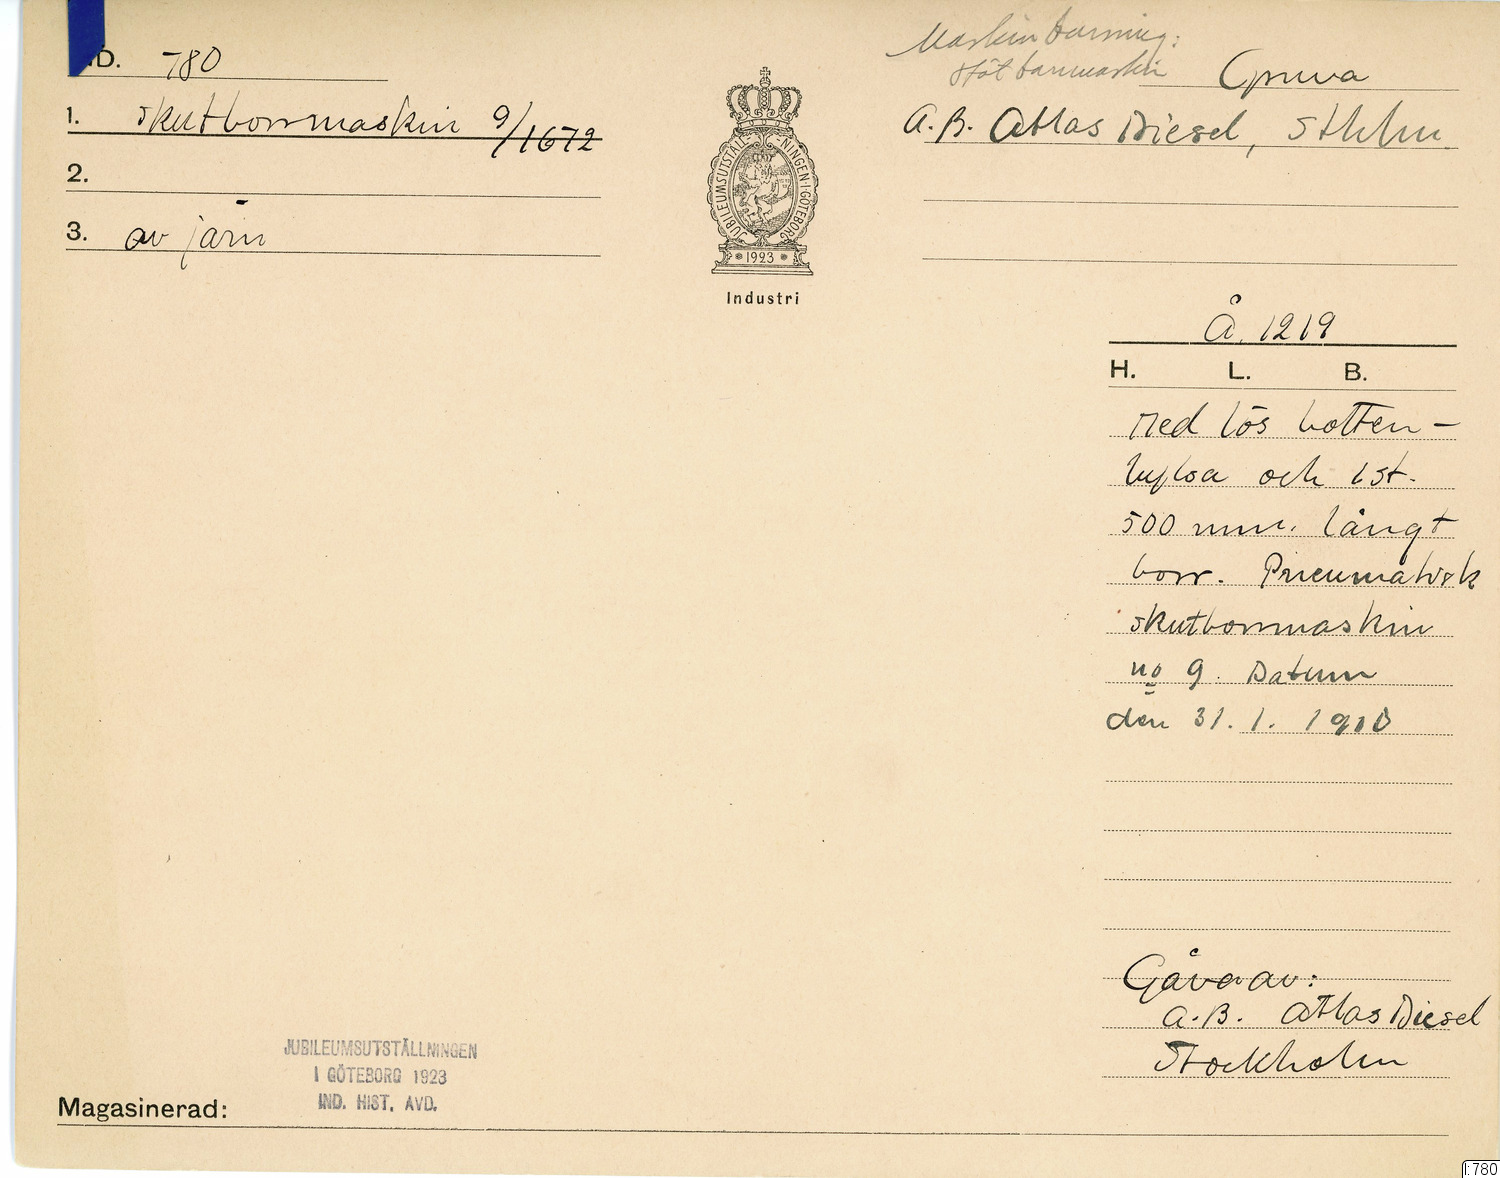 IND. 780
1. Skutborrmaskin 9/1672
2.
3. av järn
JUBILEUMSUTSTÄLLNINGEN I GÖTEBORG
1923
Industri
Maskinborrning:
Stötborrmaskin
A.B. Atlas Diesel, Sthlm
Å. 1219
H. L. B.
Med lös botten-
bylsa och 1 st.
500 mm. långt
borr. Pneumatisk
skutborrmaskin
no 9. Datum
den 31. 1. 1910
Gåva av:
A.B. Atlas Diesel
Stockholm
JUBILEUMSUTSTÄLLNINGEN
I GÖTEBORG 1923
IND. HIST. AVD.
Magasinerad:
I:780